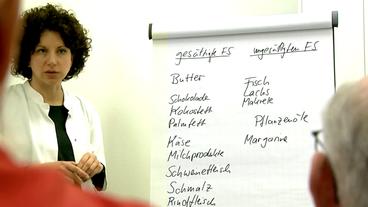 gesättigte FS
Butter
Schokolade
Kokosfett
Palmfett
Käse
Milchprodukte
Schweinefleisch
Schmalz
Rindfleisch
ungesättigten FS
Fisch
Lachs
Makrele
Pflanzenöle
Margarine